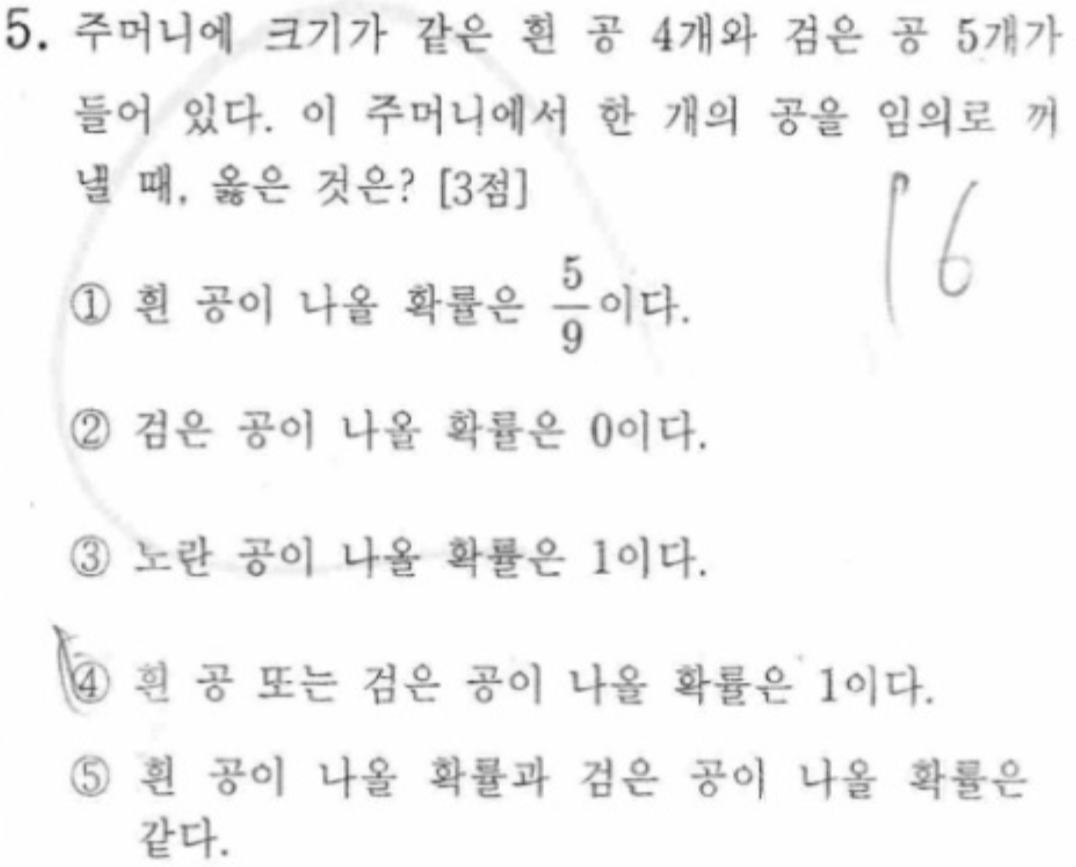 5. 주머니에 크기가 같은 흰 공 4개와 검은 공 5개가
들어 있다. 이 주머니에서 한 개의 공을 임의로 꺼
낼 때, 옳은 것은? [3점]
16
① 흰 공이 나올 확률은 5/9이다.
② 검은 공이 나올 확률은 0이다.
③ 노란 공이 나올 확률은 1이다.
④ 흰 공 또는 검은 공이 나올 확률은 1이다.
⑤ 흰 공이 나올 확률과 검은 공이 나올 확률은
같다.